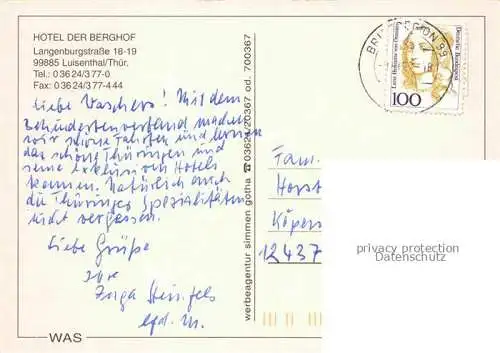 HOTEL DER BERGHOF
Langenburgstraße 18-19
99885 Luisenthal/Thür.
Tel.: 0 36 24/3 77-0
Fax: 0 36 24/3 77-444
Liebe Vaschers! Mit dem
Behindertenverband machen
wir schöne Fahrten und lernen
das schöne Thüringen und
seine exklusiven Hotels
kennen. Natürlich auch
die Thüringer Spezialitäten
nicht vergessen.
Liebe Grüße
Ihre
Helga
werbeagentur simmen gotha ☎ 03624/20367 od. 700367
BRIEFREGION 99
Deutsche Bundespost
100
Fam.
Horst
Köpen
12437
privacy protection
Datenschutz
WAS